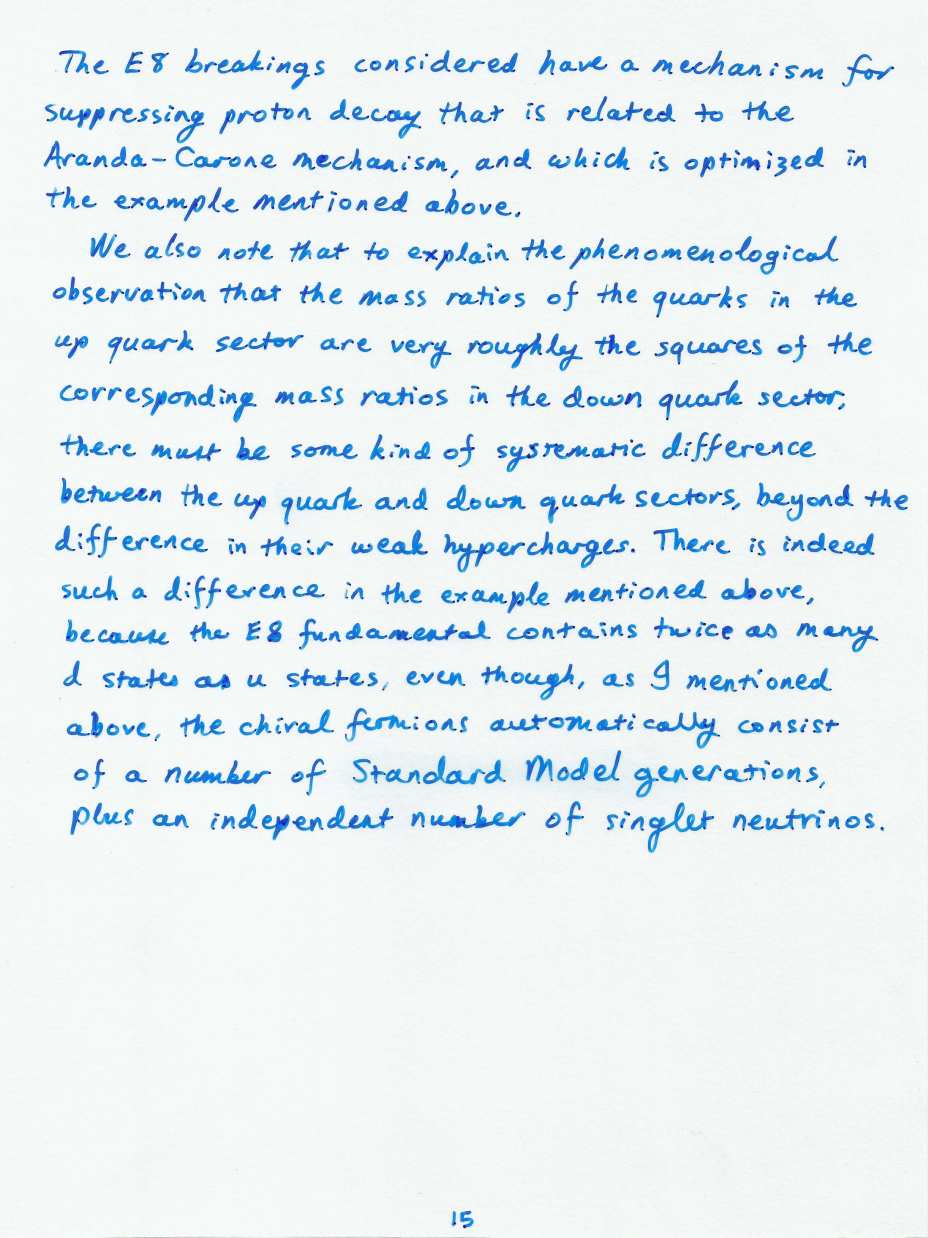 The E8 breakings considered have a mechanism for
suppressing proton decay that is related to the
Aranda-Carone mechanism, and which is optimized in
the example mentioned above.
We also note that to explain the phenomenological
observation that the mass ratios of the quarks in the
up quark sector are very roughly the squares of the
corresponding mass ratios in the down quark sector,
there must be some kind of systematic difference
between the up quark and down quark sectors, beyond the
difference in their weak hypercharges. There is indeed
such a difference in the example mentioned above,
because the E8 fundamental contains twice as many
d states as u states, even though, as I mentioned
above, the chiral fermions automatically consist
of a number of Standard Model generations,
plus an independent number of singlet neutrinos.
15